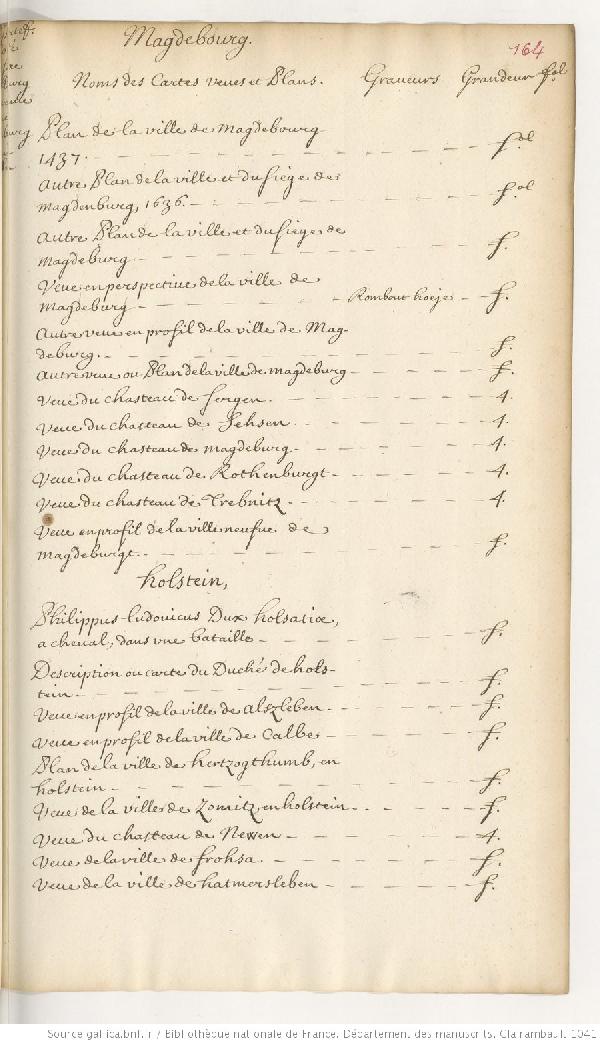 Magdebourg.
164
Noms des Cartes veues et Plans. Graveurs Grandeur fol
Plan de la ville de Magdebourg
1437. f.ol
Autre Plan de la ville et du siege de
Magdenburg, 1636. f.ol
Autre Plan de la ville et du siege de
Magdeburg f.
Veue en perspective de la ville de
Magdeburg Rombout hoeje f.
Autre veue en profil de la ville de Mag-
deburg. f.
Autre veue ou Plan de la ville de magdeburg f.
Veue du chasteau de sergen. 4.
Veue du chasteau de Jehsen. 4.
Veue du chasteau de magdeburg. 4.
Veue du chasteau de Rothenburgt 4.
Veue du chasteau de Trebnitz. 4.
Veue en profil de la ville neufue de
Magdeburgt. f.
holstein,
Philippus Ludovicus Dux holsatiæ,
a cheval, dans une bataille f.
Description ou carte du Duché de hols-
tein f.
Veue en profil de la ville de alszleben. f.
Veue en profil de la ville de Calbe f.
Plan de la ville de hertzogthumb, en
holstein. f.
Veue de la ville de Zomitz, en holstein f.
Veue du chasteau de Newen 4.
Veue de la ville de frohsa. f.
Veue de la ville de hatmersleben f.
Source gallica.bnf.fr / Bibliothèque nationale de France. Département des manuscrits. Clairambault 1041